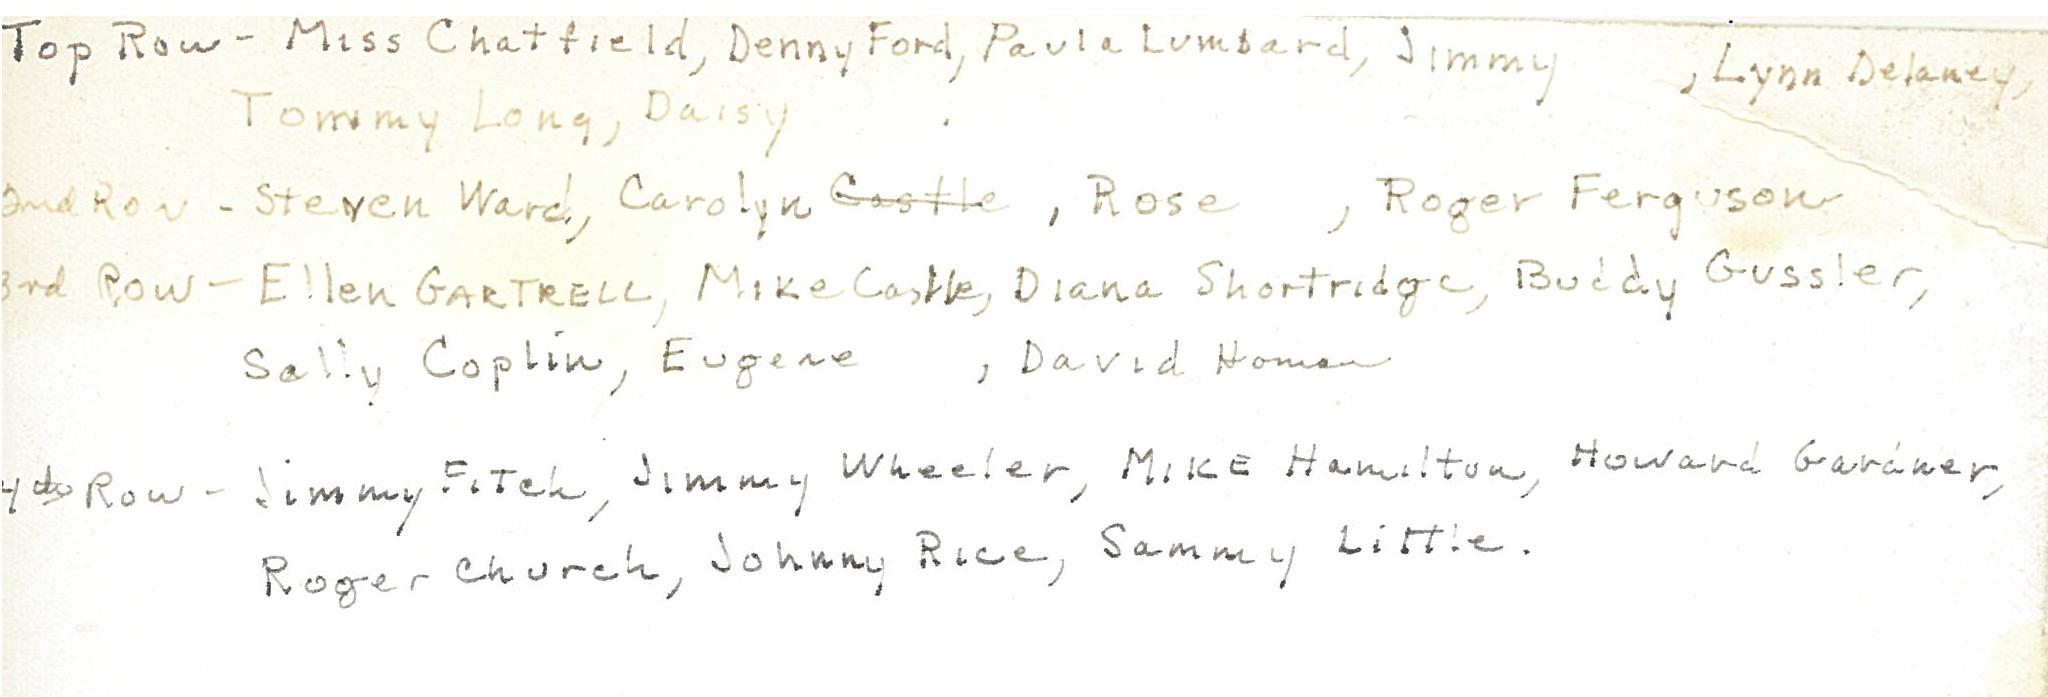 Top Row - Miss Chatfield, Denny Ford, Paula Lumbard, Jimmy , Lynn Delaney,
Tommy Long, Daisy .
2nd Row - Steven Ward, Carolyn Castle , Rose , Roger Ferguson
3rd Row - Ellen GARTRELL, Mike Castle, Diana Shortridge, Buddy Gussler,
Sally Coplin, Eugene , David Homan
4th Row - Jimmy Fitch, Jimmy Wheeler, MIKE Hamilton, Howard Gardner,
Roger Church, Johnny Rice, Sammy Little.